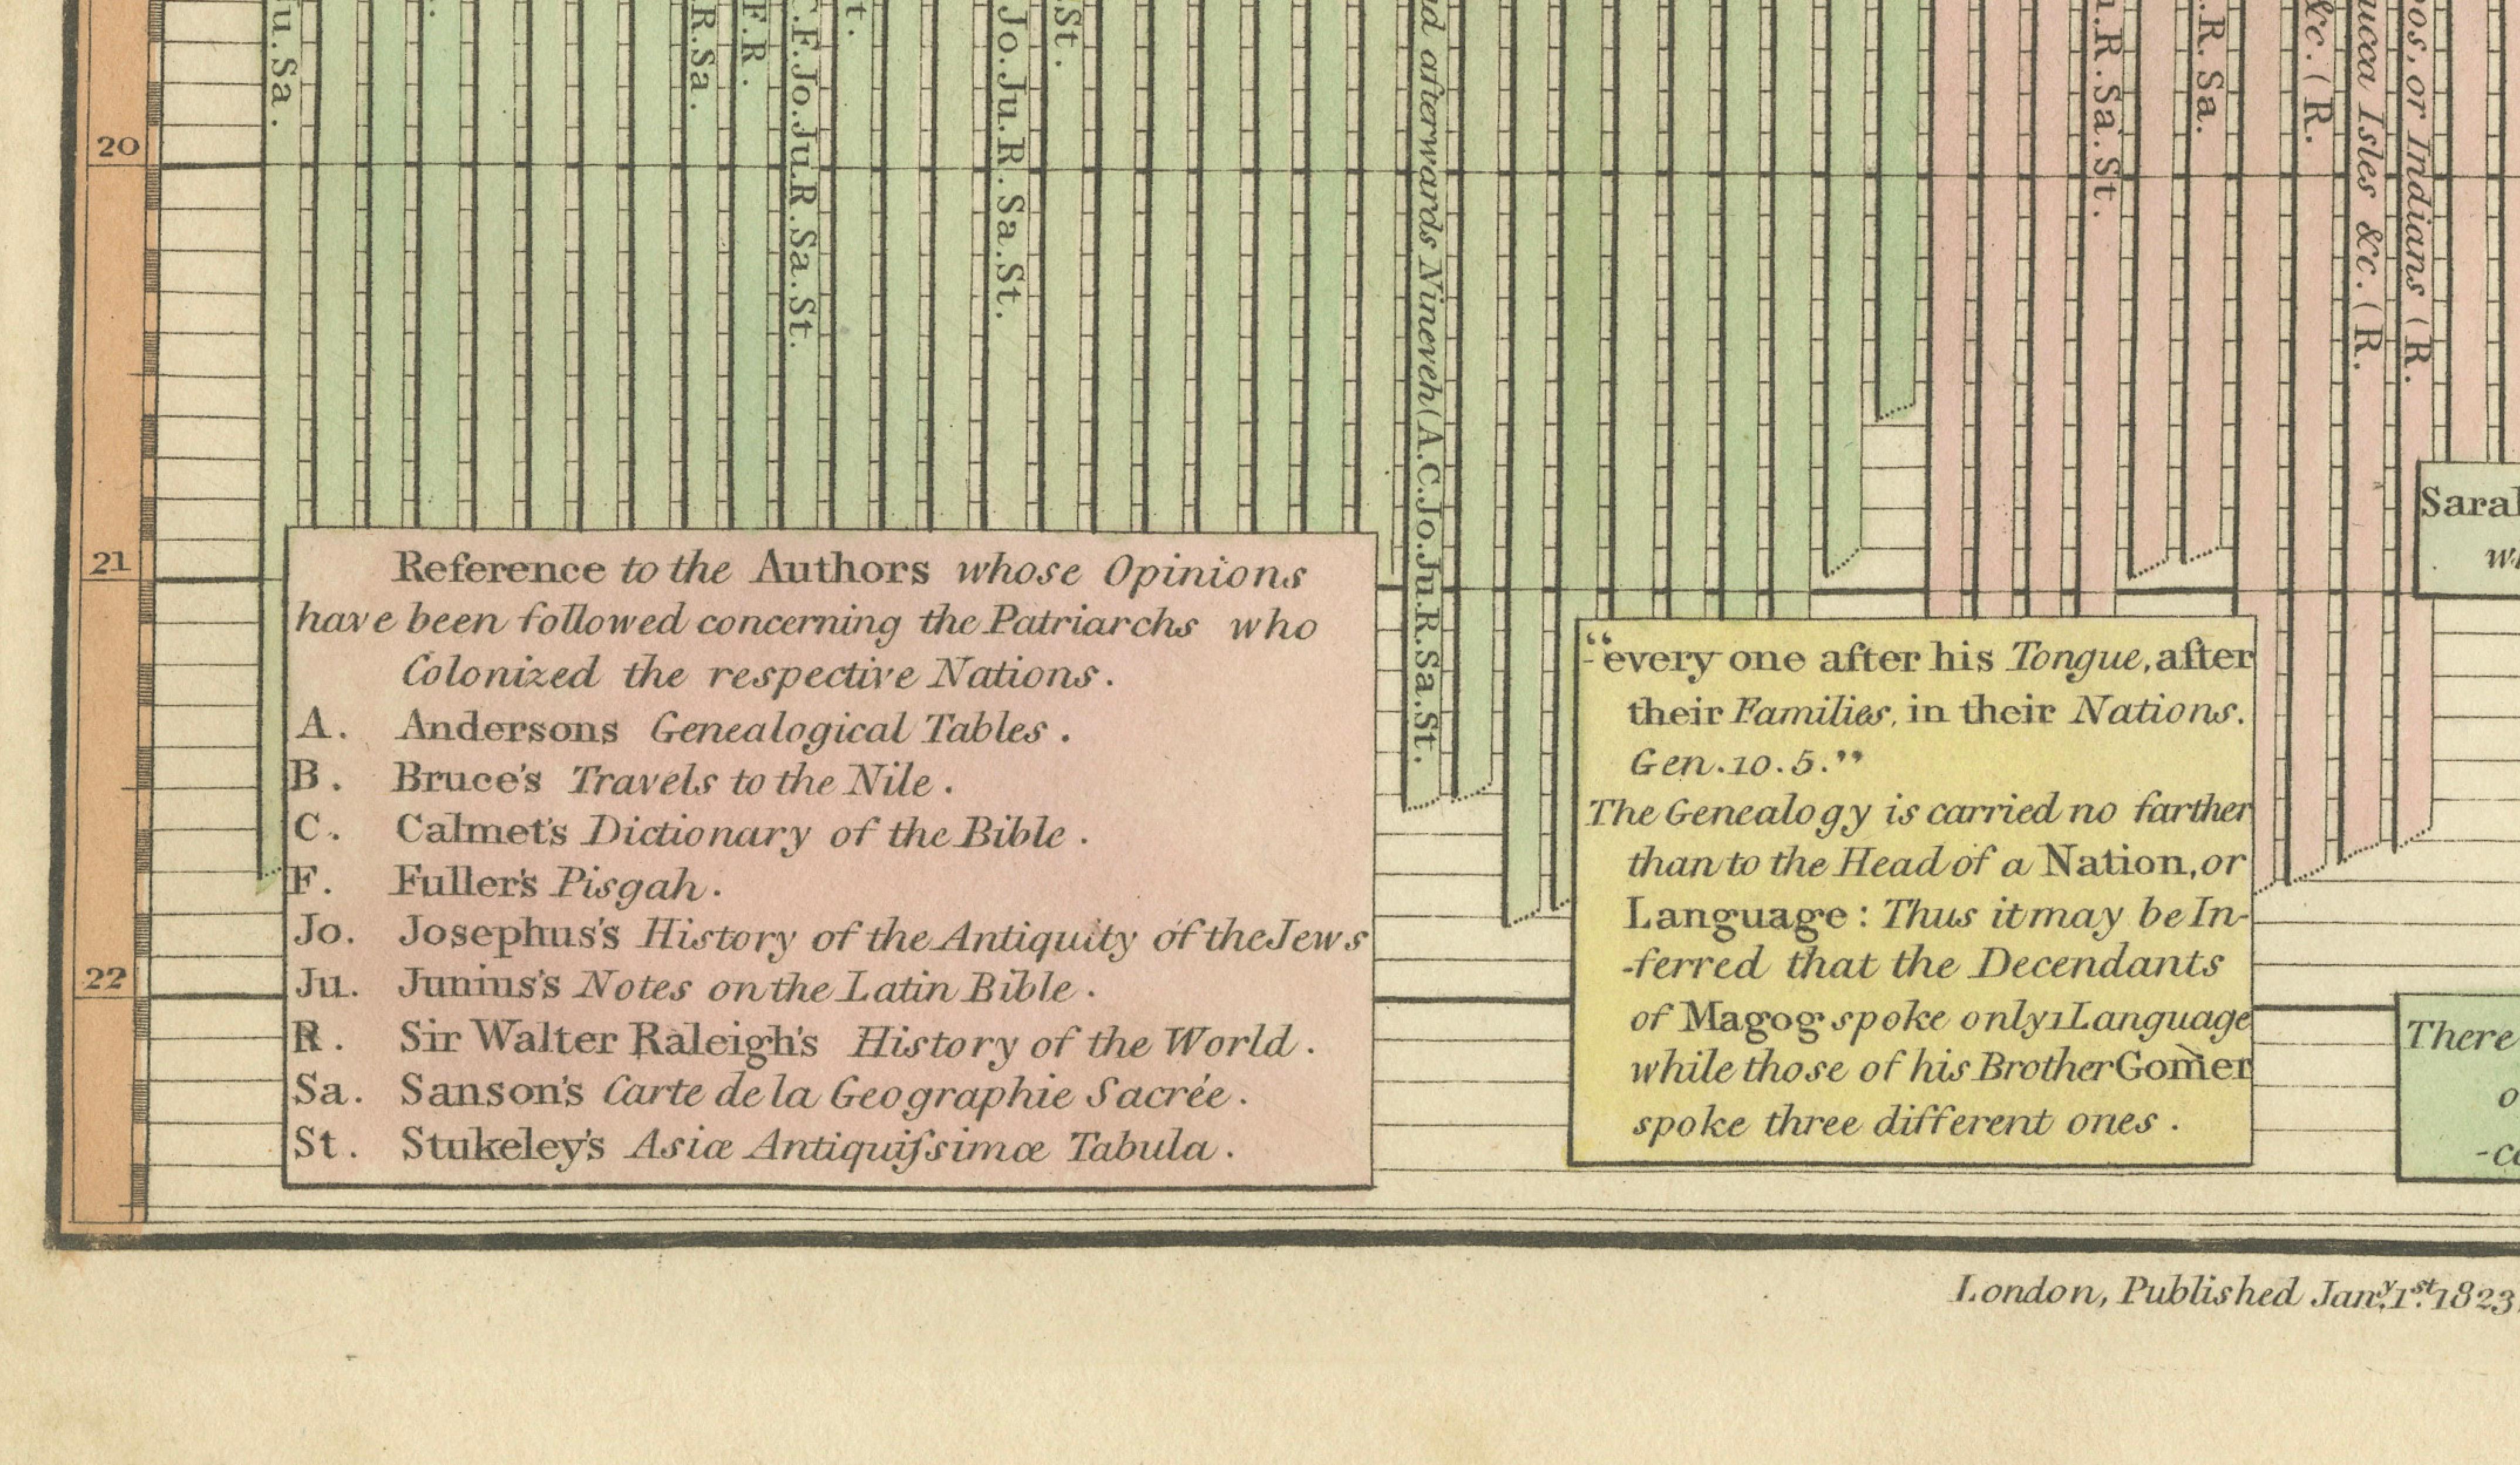 u. Sa.
R. Sa.
F. R.
F. Jo. Ju. R. Sa. St.
t.
Jo. Ju. R. Sa. St.
St.
afterwards Nineveh (A. C. Jo. Ju. R. Sa. St.
R. Sa. St.
R. Sa.
&c. (R.
ucca Isles &c. (R.
or Indians (R.
20
21
22
Reference to the Authors whose Opinions
have been followed concerning the Patriarchs who
Colonized the respective Nations.
A. Andersons Genealogical Tables.
B. Bruce's Travels to the Nile.
C. Calmet's Dictionary of the Bible.
F. Fuller's Pisgah.
Jo. Josephus's History of the Antiquity of the Jews
Ju. Junius's Notes on the Latin Bible.
R. Sir Walter Raleigh's History of the World.
Sa. Sanson's Carte de la Geographie Sacrée.
St. Stukeley's Asiæ Antiquiſsimæ Tabula.
“every one after his Tongue, after
their Families, in their Nations.
Gen. 10. 5.”
The Genealogy is carried no farther
than to the Head of a Nation, or
Language: Thus it may be In-
-ferred that the Decendants
of Magog spoke only 1 Language
while those of his Brother Gomer
spoke three different ones.
Sara
There
London, Published Jany. 1st. 1823